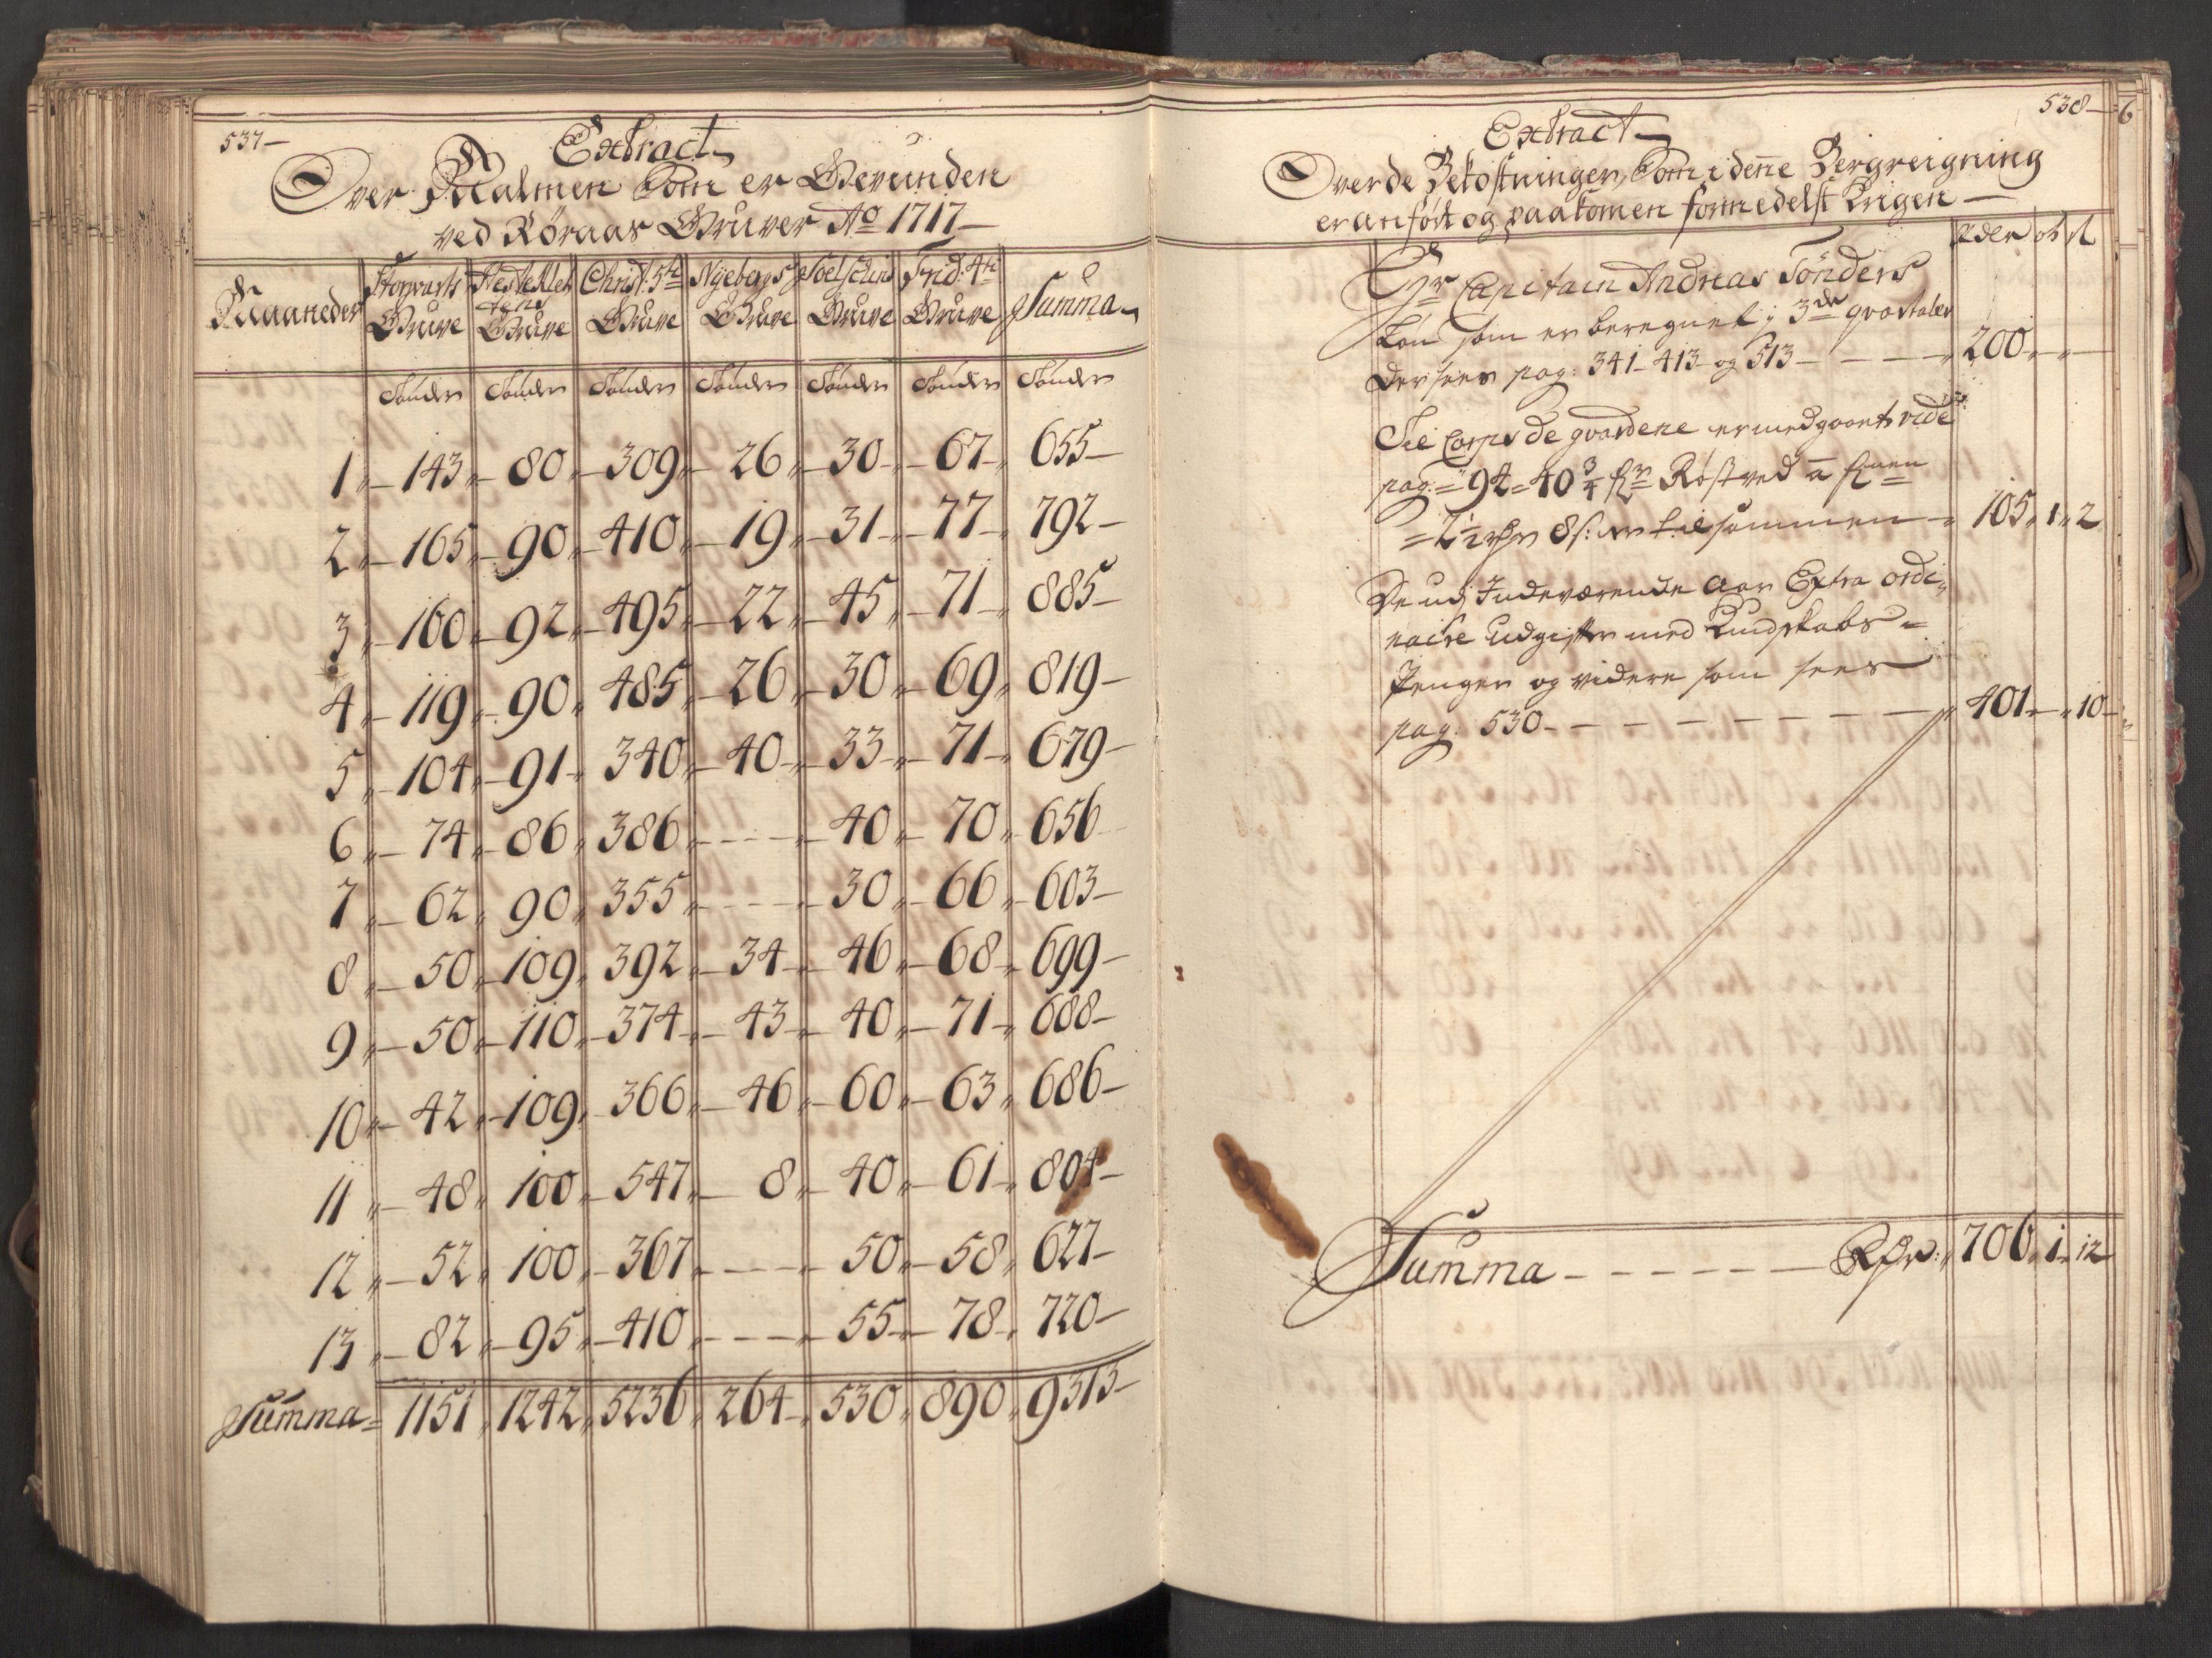 537
Extract
Over Malmen Som er Gevunden
ved Röraas Gruver Ao 1717
Maaneder Storvarts Gruve Hesteklet tens Gruve Christ: 5te Gruve Nyebergs Gruve Gruve Frid: 4te Gruve Summa
Tönder Tönder Tönder Tönder Tönder Tönder Tönder
1 143 80 309 26 30 67 655
2 165 90 410 19 31 77 792
3 160 92 495 22 45 71 885
4 119 90 485 26 30 69 819
5 104 91 340 40 33 71 679
6 74 86 386 - - - 40 70 656
7 62 90 355 - - - 30 66 603
8 50 109 392 34 46 68 699
9 50 110 374 43 40 71 688
10 42 109 366 46 60 63 686
11 48 100 547 8 40 61 804
12 52 100 367 - - - 50 58 627
13 82 95 410 - - - 55 78 720
Summa 1151 1242 5236 264 530 890 9313
538
Extract
Over de Bekostninger, Som i denne Bergreigning
er anfört og paakomen formedelst Krigen
Hr Capitain Andreas Tönders
Lön som er beregnet i 3de qvartaler
der sees pag: 341 - 413 og 513 - - - 200
Til Corps de guardene er medgaaet vide
pag: 92 = 40 3/4 Röstved a
= 2 1/2 8 s: er tilsammen 105 1 2
De udj Indeværende Aar Extra ordi
naire Udgifter med Kundskabs =
Penger og videre som sees
pag: 530 - - - - - - - 401 10
Summa - - - - - - Rdr: 706 1 12